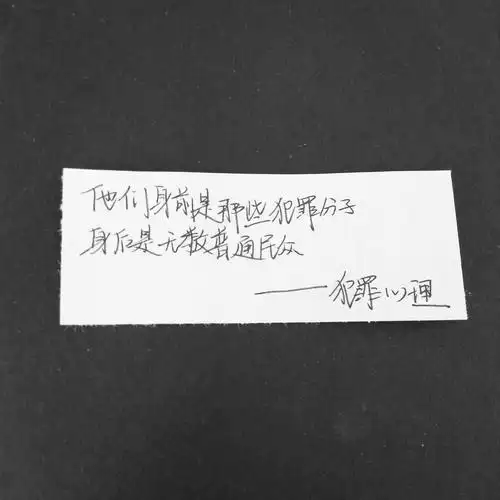 他们身前是那些犯罪分子
身后是无数普通民众
——犯罪心理